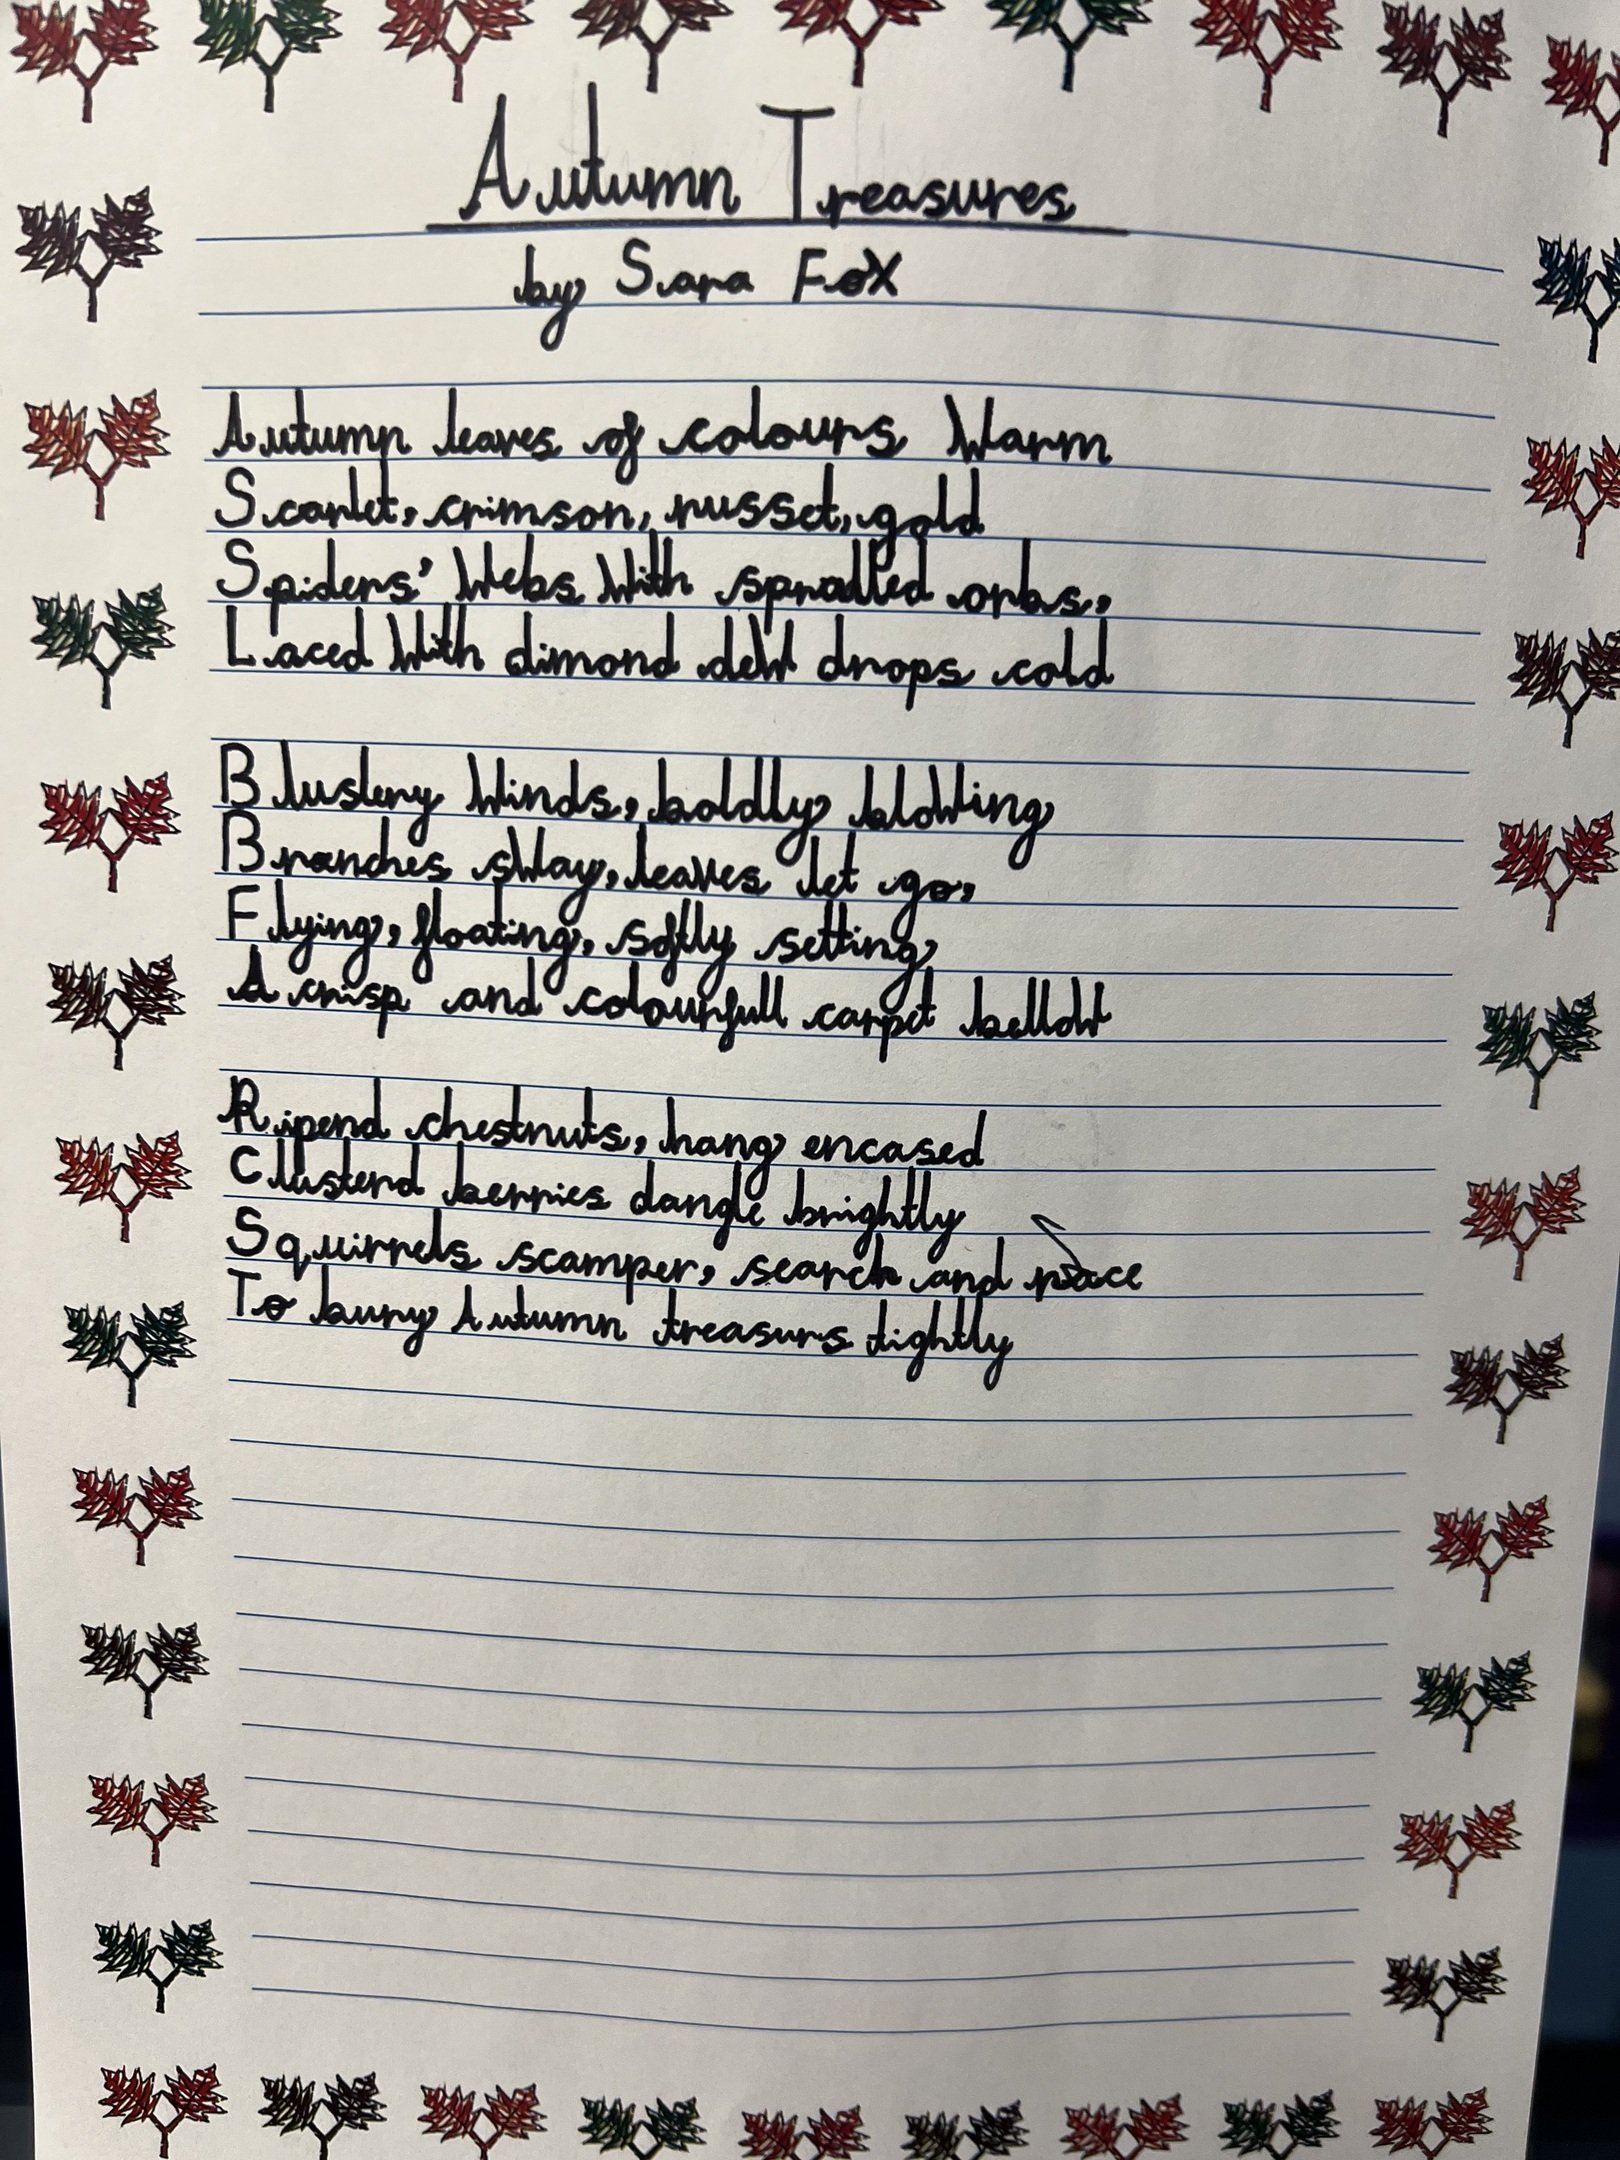 Autumn Treasures
by Sara Fox
Autumn leaves of colours Warm
Scarlet, crimson, russet, gold
Spiders' Webs With spralled orbs,
Laced With dimond deW drops cold
Blustery Winds, boldly bloWing
Branches sWay, leaves let go,
Flying, floating, softly setting,
A crisp and colourfull carpet belloW
Ripend chestnuts, hang encased
Clusterd berries dangle brightly
Squirrels scamper, search and race
To bury Autumn treasurs tightly